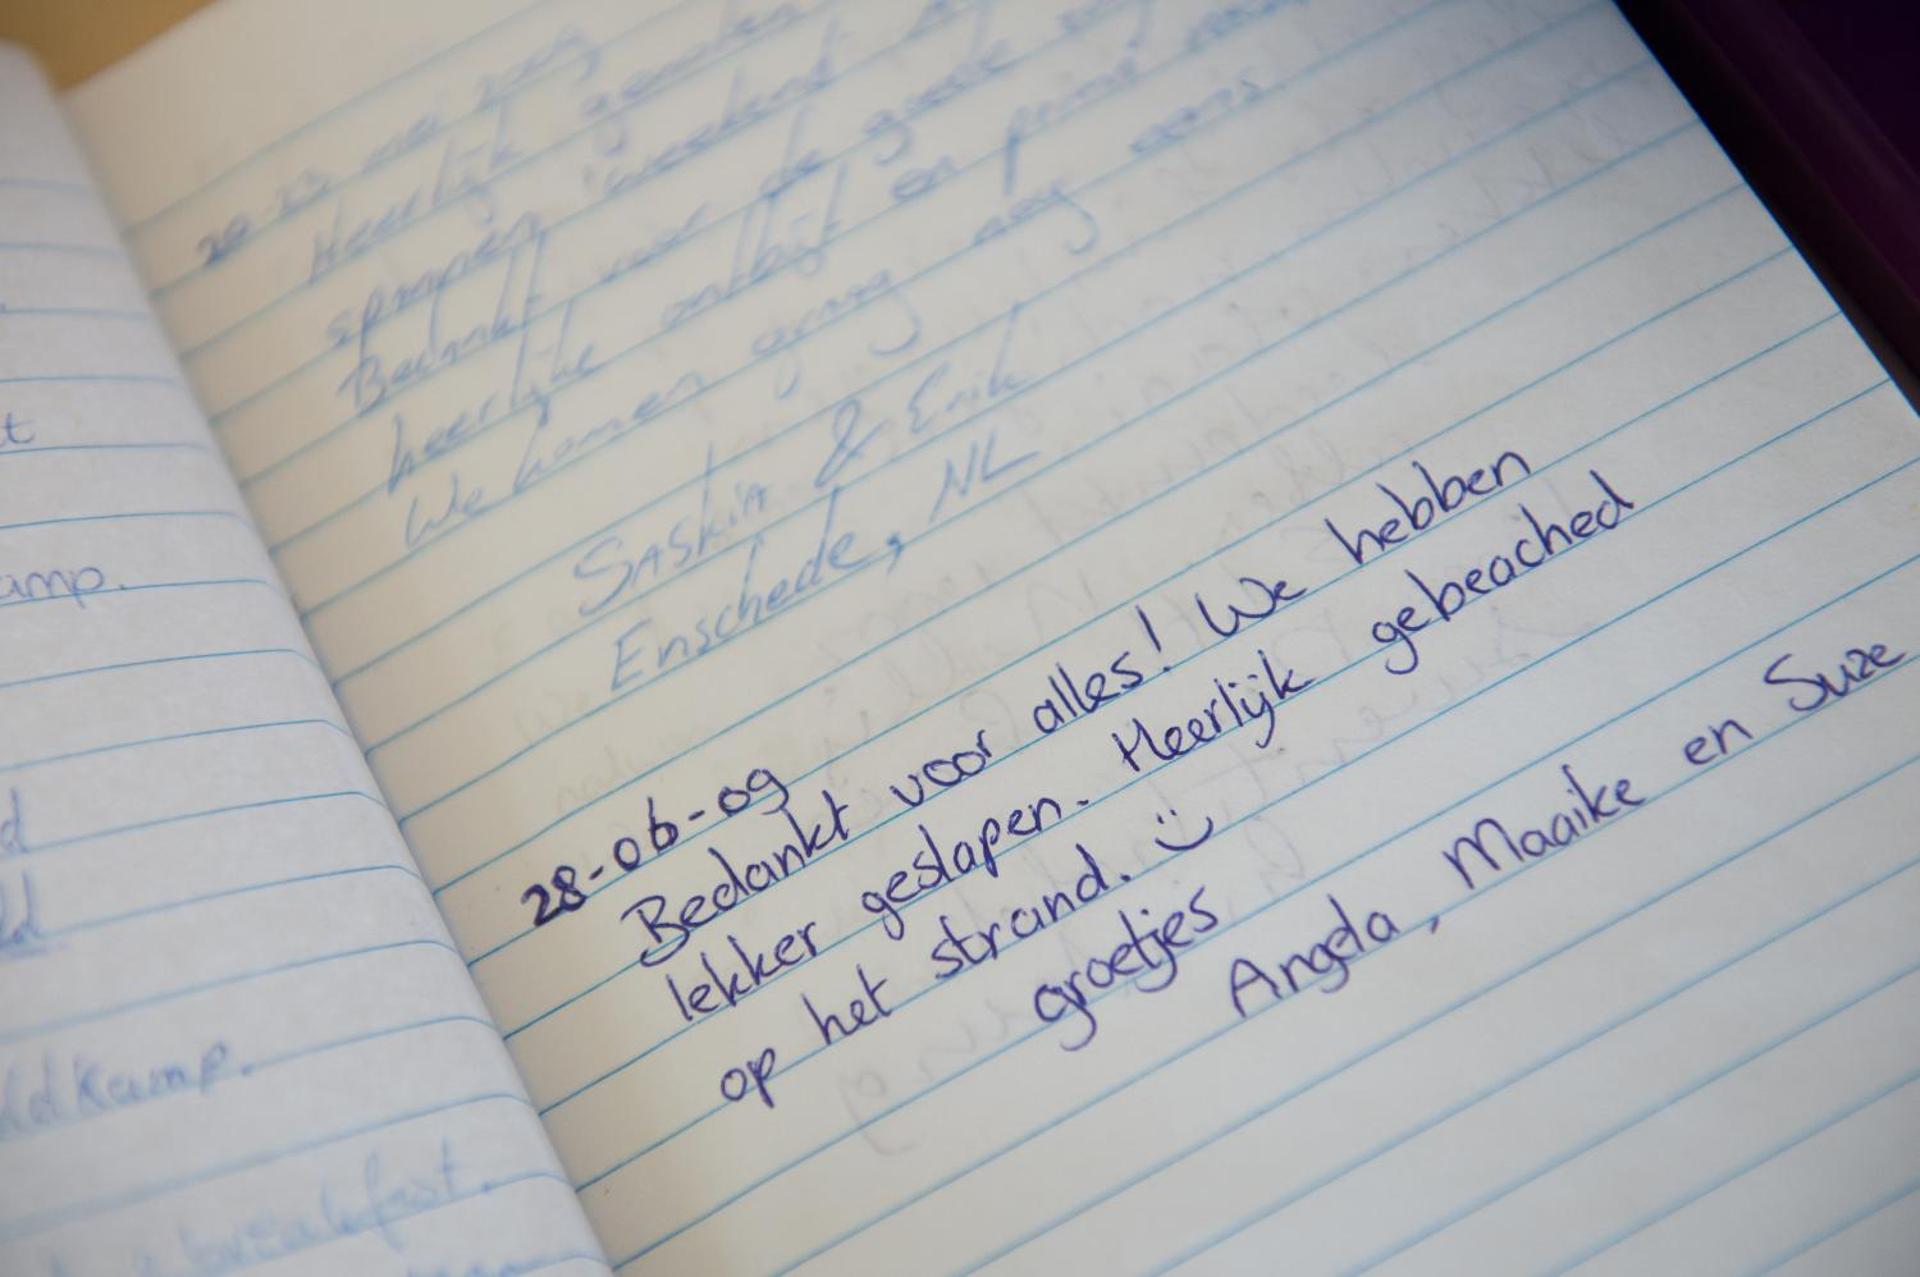 t
amp.
d
ld
ldkamp.
breakfast.
Heerlijk genoten
weekend
Bedankt voor de goede
heerlijke ontbijt en
We komen graag nog eens.
Saskia & Erik
Enschede, NL
28-06-09
Bedankt voor alles! We hebben
lekker geslapen. Heerlijk gebeached
op het strand. :)
groetjes
Angela, Maaike en Suze